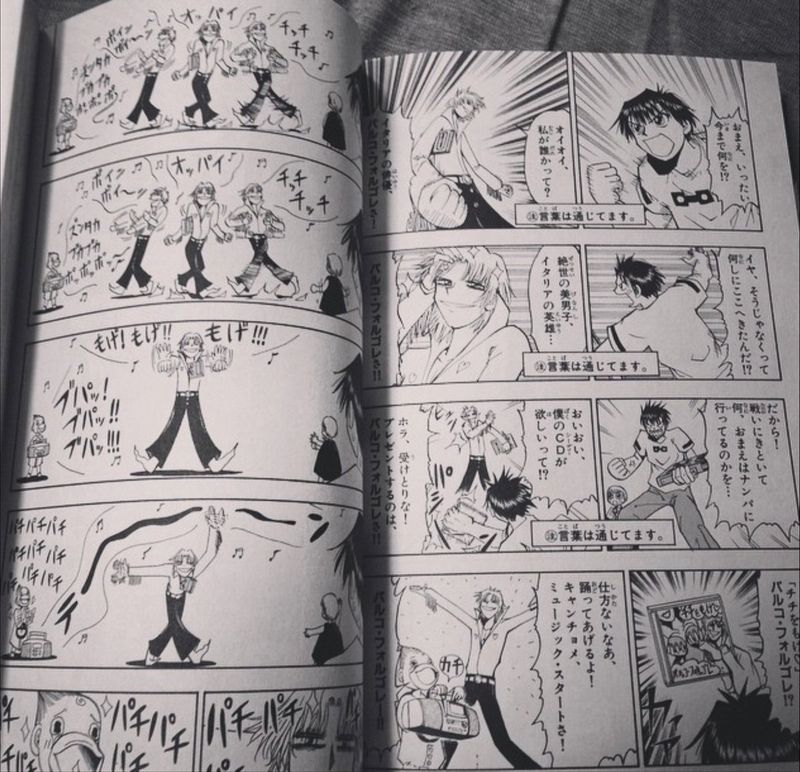 おまえ、いったい
今まで何を!?
オイオイ、
私が誰かって?
イタリアの俳優、
パルコ・フォルゴレさ!
注言葉は通じてます。
イヤ、そうじゃなくって
何しにここへきたんだ!?
絶世の美男子、
イタリアの英雄…
パルコ・フォルゴレさ!!
注言葉は通じてます。
だから!
戦いにきといて
何、おまえはナンパに
行ってるのかを…
おいおい、
僕のCDが
欲しいって!?
ホラ、受けとりな!
プレゼントするのは、
パルコ・フォルゴレさ!!
注言葉は通じてます。
「チチをもげ
パルコ・フォルゴレ!?
チチをもげ
パルコ・フォルゴレ
仕方ないなあ、
踊ってあげるよ!
キャンチョメ、
ミュージック・スタートさ!
カチ
パルコ・フォルゴレ!!
チッチ
チッチ
オッパイ
ボイン
ボイ〜ン
ズンタカ
ブカブカ
ポンポポポ
チッチ
チッチ
オッパイ
ボイン
ボイ〜ン
ズンタカ
ブカブカ
ポッポッポ〜
もげ!!!
もげ!もげ!!
ブパッ!
ブパッ!!
ブパッ!!!
パチパチパチ
パチパチ
パチパチパチ
パチ
パチ
パチ
パチ
パチ
パチ
パチ